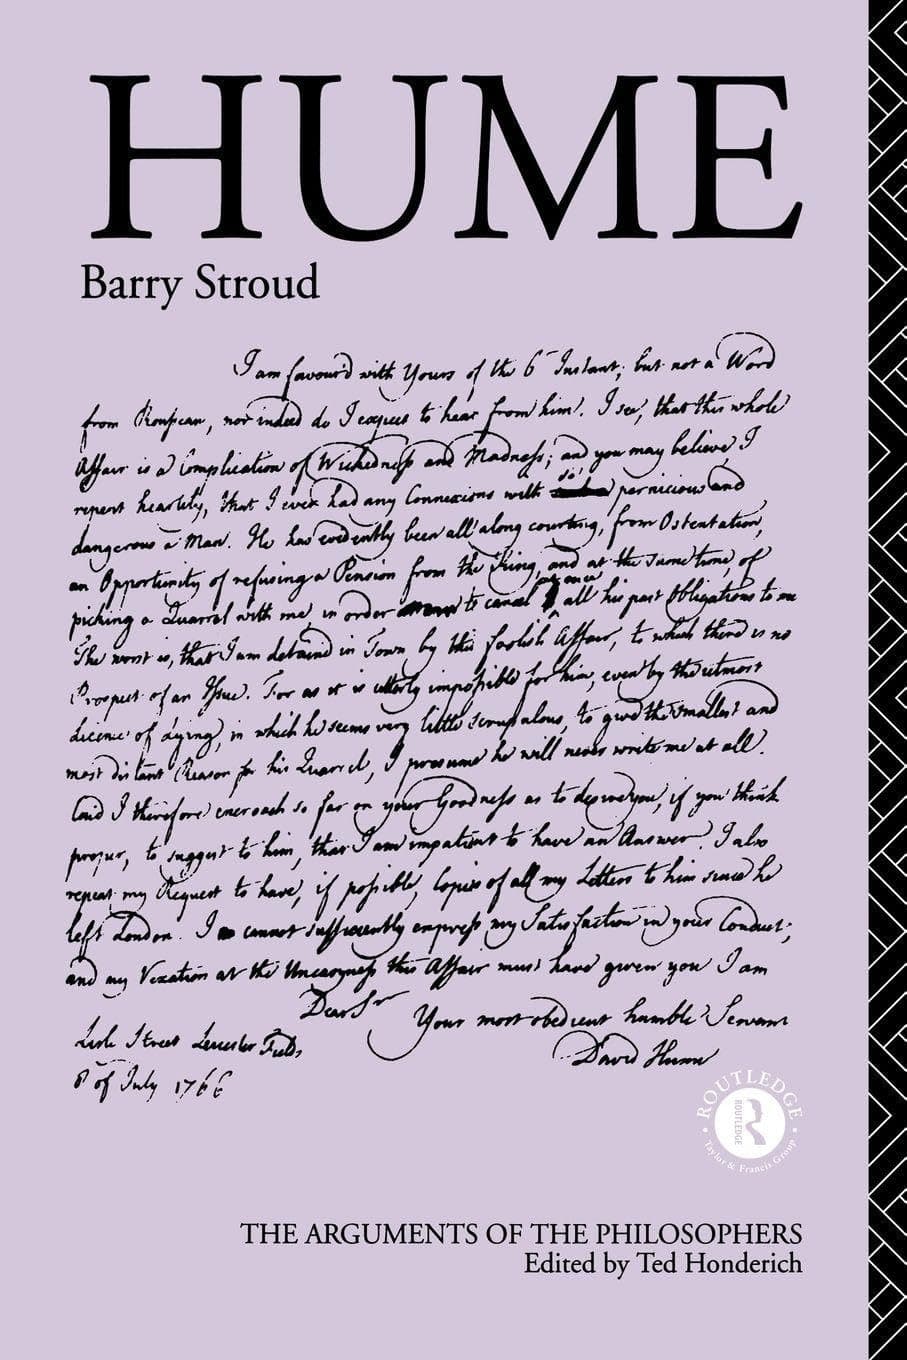 HUME
Barry Stroud
I am favour'd with Yours of the 6th Instant; but not a Word
from Rousseau, nor indeed do I expect to hear from him. I see, that this whole
Affair is a Complication of Wickedness and Madness; and you may believe, I
repent heartily, that I ever had any Connexions with so pernicious and
dangerous a Man. He has evidently been all along courting, from Ostentation,
an Opportunity of refusing a Pension from the King, and at the same time, of
picking a Quarrel with me, in order to cancel at once all his past Obligations to me
The worst is, that I am detain'd in Town by this foolish Affair, to which there is no
Prospect of an Issue. For as it is utterly impossible for him, even by the utmost
Licence of Lying, in which he seems very little scrupulous, to give the smallest and
most distant Reason for his Quarrel, I presume he will never write me at all.
Coud I therefore encroach so far on your Goodness as to desire you, if you think
proper, to suggest to him, that I am impatient to have an Answer. I also
repeat my Request to have, if possible, Copies of all my Letters to him since he
left London. I cannot sufficiently express my Satisfaction in your Conduct;
and my Vexation at the Uneasyness this Affair must have given you I am
Dear Sir
Your most obedient humble Servant
Lisle Street Leicester Fields
David Hume
8 of July 1766
ROUTLEDGE
ROUTLEDGE
Taylor & Francis Group
THE ARGUMENTS OF THE PHILOSOPHERS
Edited by Ted Honderich